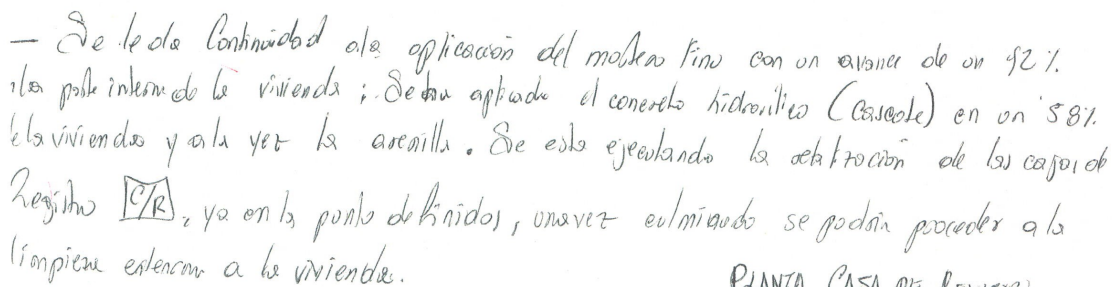 – Se le da Continuidad a la aplicación del mortero Fino con un avance de un 92%.
la parte interna de la vivienda ; Se ha aplicado el concreto hidráulico (Cascote) en un 58%
de la vivienda y a la vez la arenilla. Se esta ejecutando la de las cajas de
Registro C/R, ya en los punto definidos, una vez culminado se podría proceder a la
limpieza externa a la vivienda.
PLANTA CASA DE